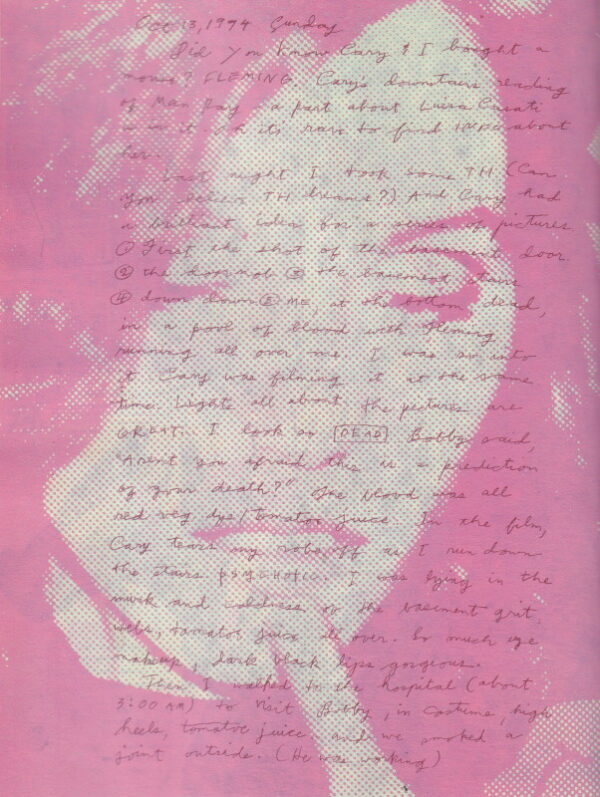 Oct 23, 1994 Sunday
Did you know Cary & I bought a
mouse? FLEMING. Carys downstairs reading
of Man Ray - a part about Luisa Casati
is in it. Oh its rare to find INFO about
her.
Last night I took some TH (Can
you believe TH dreams?) And Cary had
a brilliant idea for a series of pictures
① First the shot of the basement door
② the doornob ③ the basement stairs
④ down down ⑤ ME, at the bottom dead,
in a pool of blood with Fleming
running all over me I was so into
it Cary was filming it at the same
time. Lights all about the pictures are
GREAT. I look so DEAD Bobby said,
"Arent you afraid this is a prediction
of your death?" The blood was all
red veg dye/tomatoe juice. In the film,
Cary tears my robe off as I run down
the stairs PSYCHOTIC. I was lying in the
murk and coldness of the basement grit,
webs, tomatoe juice all over. So much eye
makeup, dark black lips gorgeous.
Then I walked to the hospital (about
3:00 AM) to visit Bobby, in costume, high
heels, tomatoe juice and we smoked a
joint outside. (He was working)